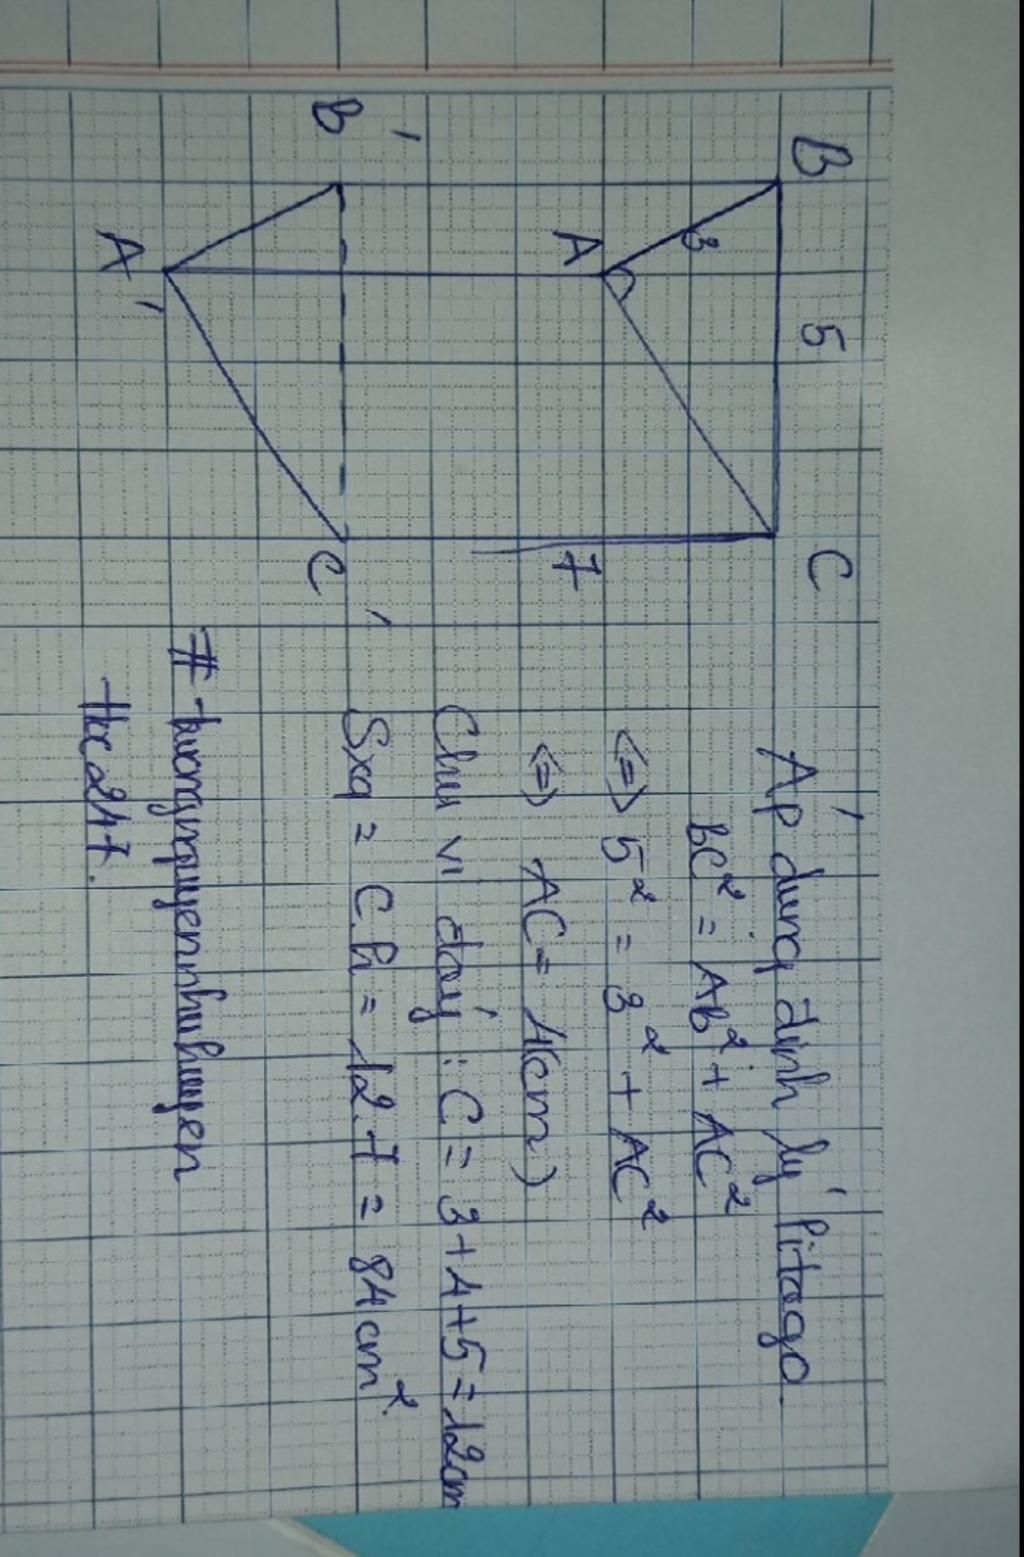 B 5 C
3
A
7
B'
C'
A'
Áp dụng định lý Pitago.
BC² = AB² + AC²
<=> 5² = 3² + AC²
<=> AC = 4(cm)
Chu vi đáy : C = 3+4+5 = 12cm
Sxq = C.h = 12.7 = 84cm².
# truongnguyennhuhuyen
thc247.